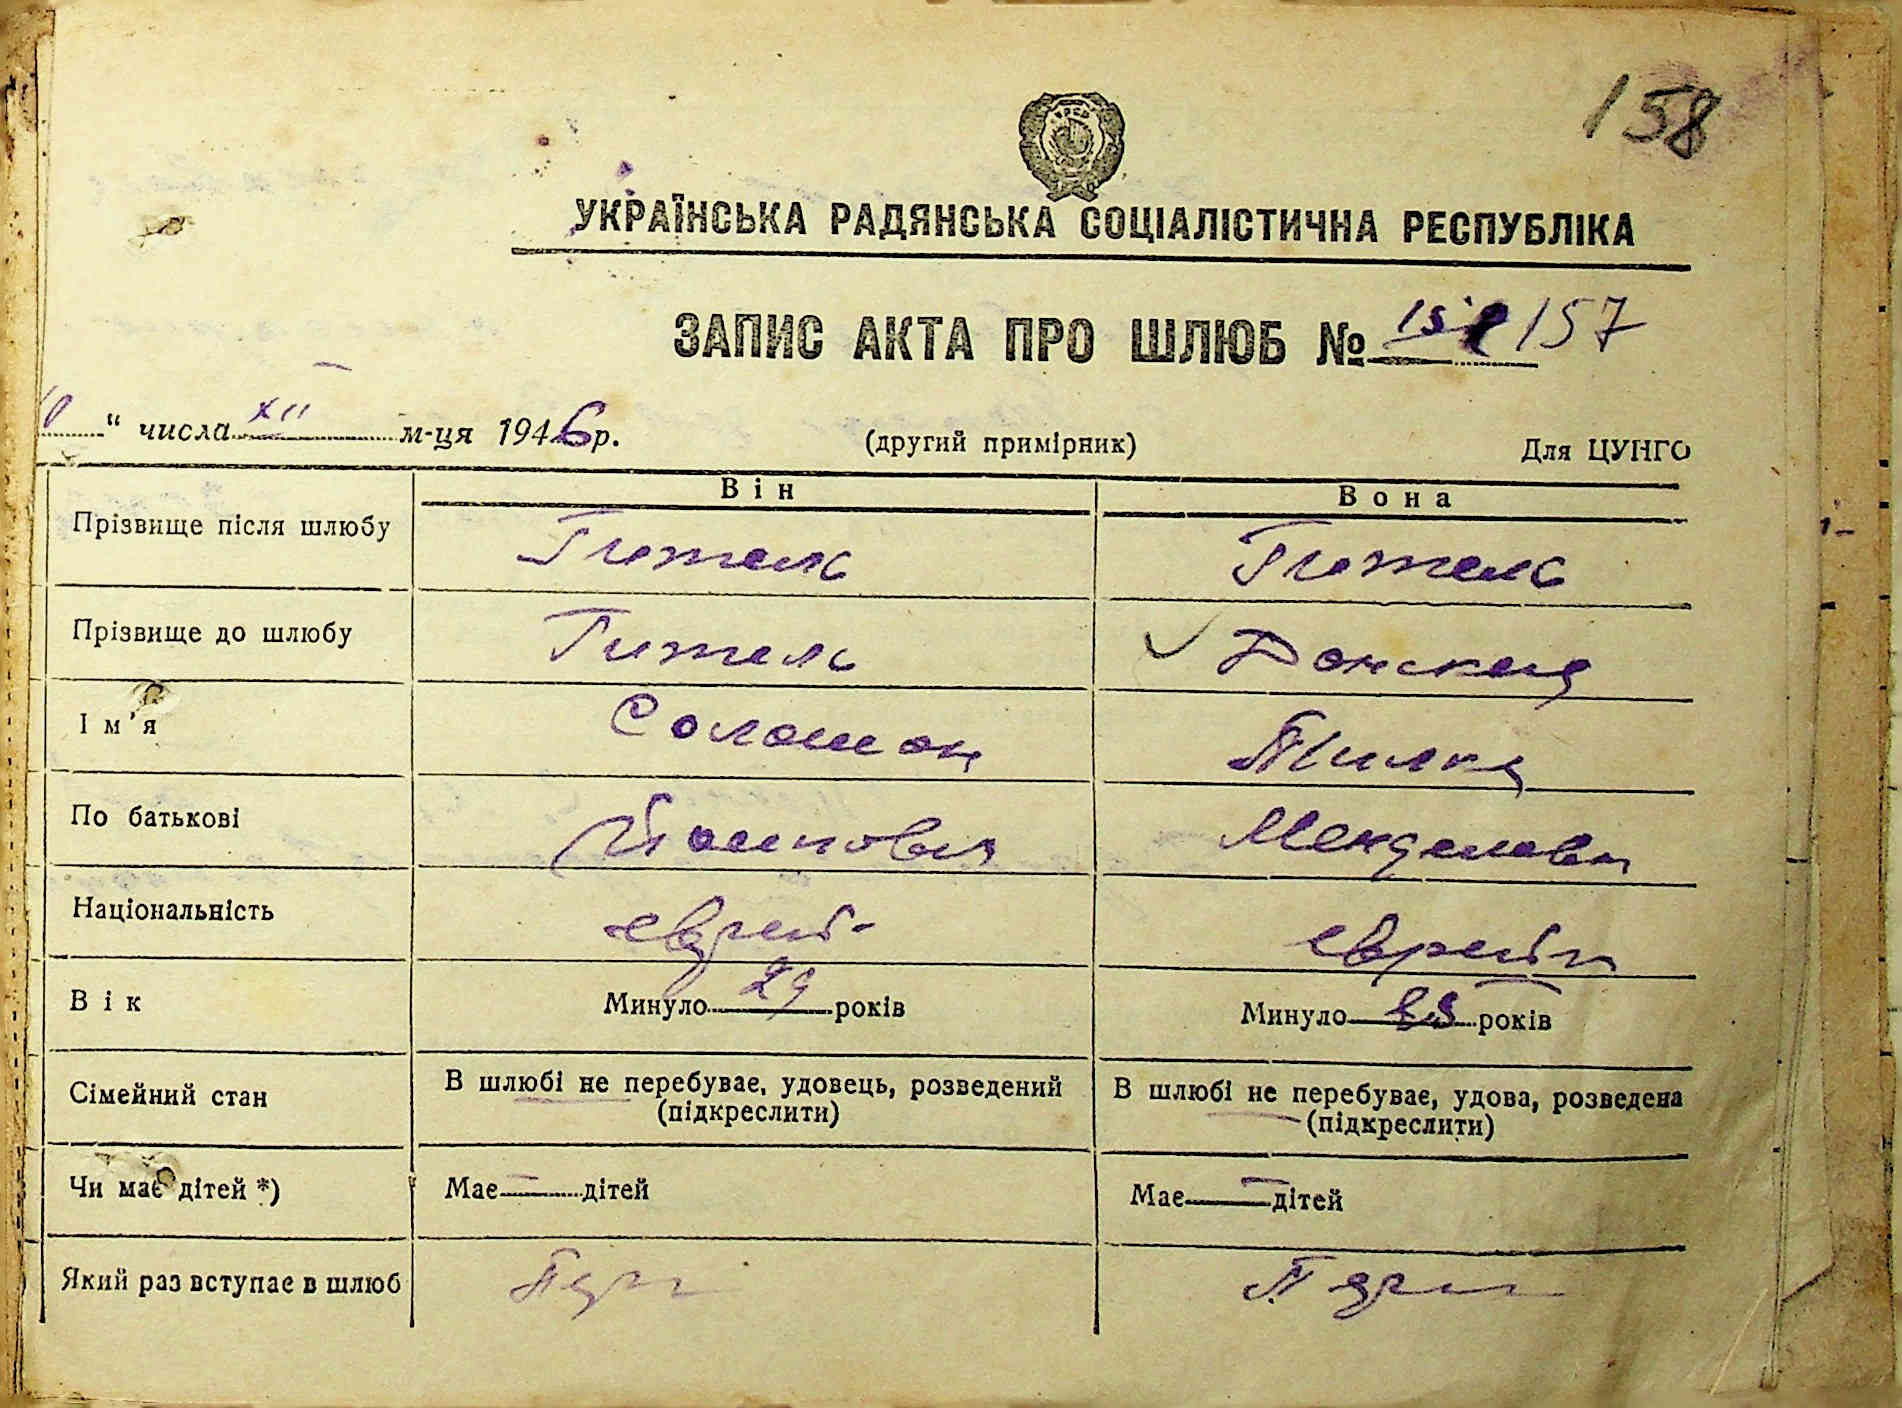 158
УКРАЇНСЬКА РАДЯНСЬКА СОЦІАЛІСТИЧНА РЕСПУБЛІКА
ЗАПИС АКТА ПРО ШЛЮБ № 157
“ числа XII м-ця 1946 р. (другий примірник) Для ЦУНГО
Він Вона
Прізвище після шлюбу Гитель Гитель
Прізвище до шлюбу Гитель Донская
Ім'я Соломон
По батькові Менделевн
Національність еврей еврейк
Вік Минуло 29 років Минуло років
Сімейний стан В шлюбі не перебуває, удовець, розведений (підкреслити) В шлюбі не перебуває, удова, розведена (підкреслити)
Чи має дітей *) Має — дітей Має — дітей
Який раз вступає в шлюб Перш Перш